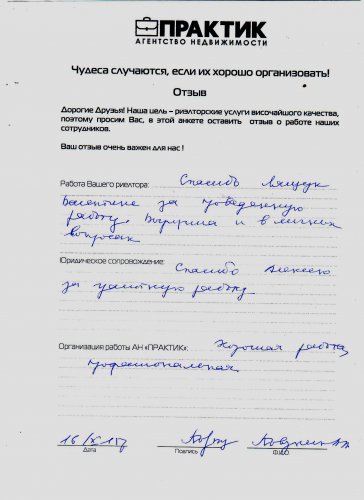 ПРАКТИК
АГЕНТСТВО НЕДВИЖИМОСТИ
Чудеса случаются, если их хорошо организовать!
Отзыв
Дорогие Друзья! Наша цель – риэлторские услуги высочайшого качества,
поэтому просим Вас, в этой анкете оставить отзыв о работе наших
сотрудников.
Ваш отзыв очень важен для нас !
Работа Вашего риелтора: Спасибо Лящук
Валентине за проведенную
работу. Выручила и в личных
вопросах
Юридическое сопровождение: Спасибо Алексею
за грамотную работу
Организация работы АН «ПРАКТИК»: Хорошая работа,
профессиональная.
16/X 15г
Дата Подпись Ф.И.О.